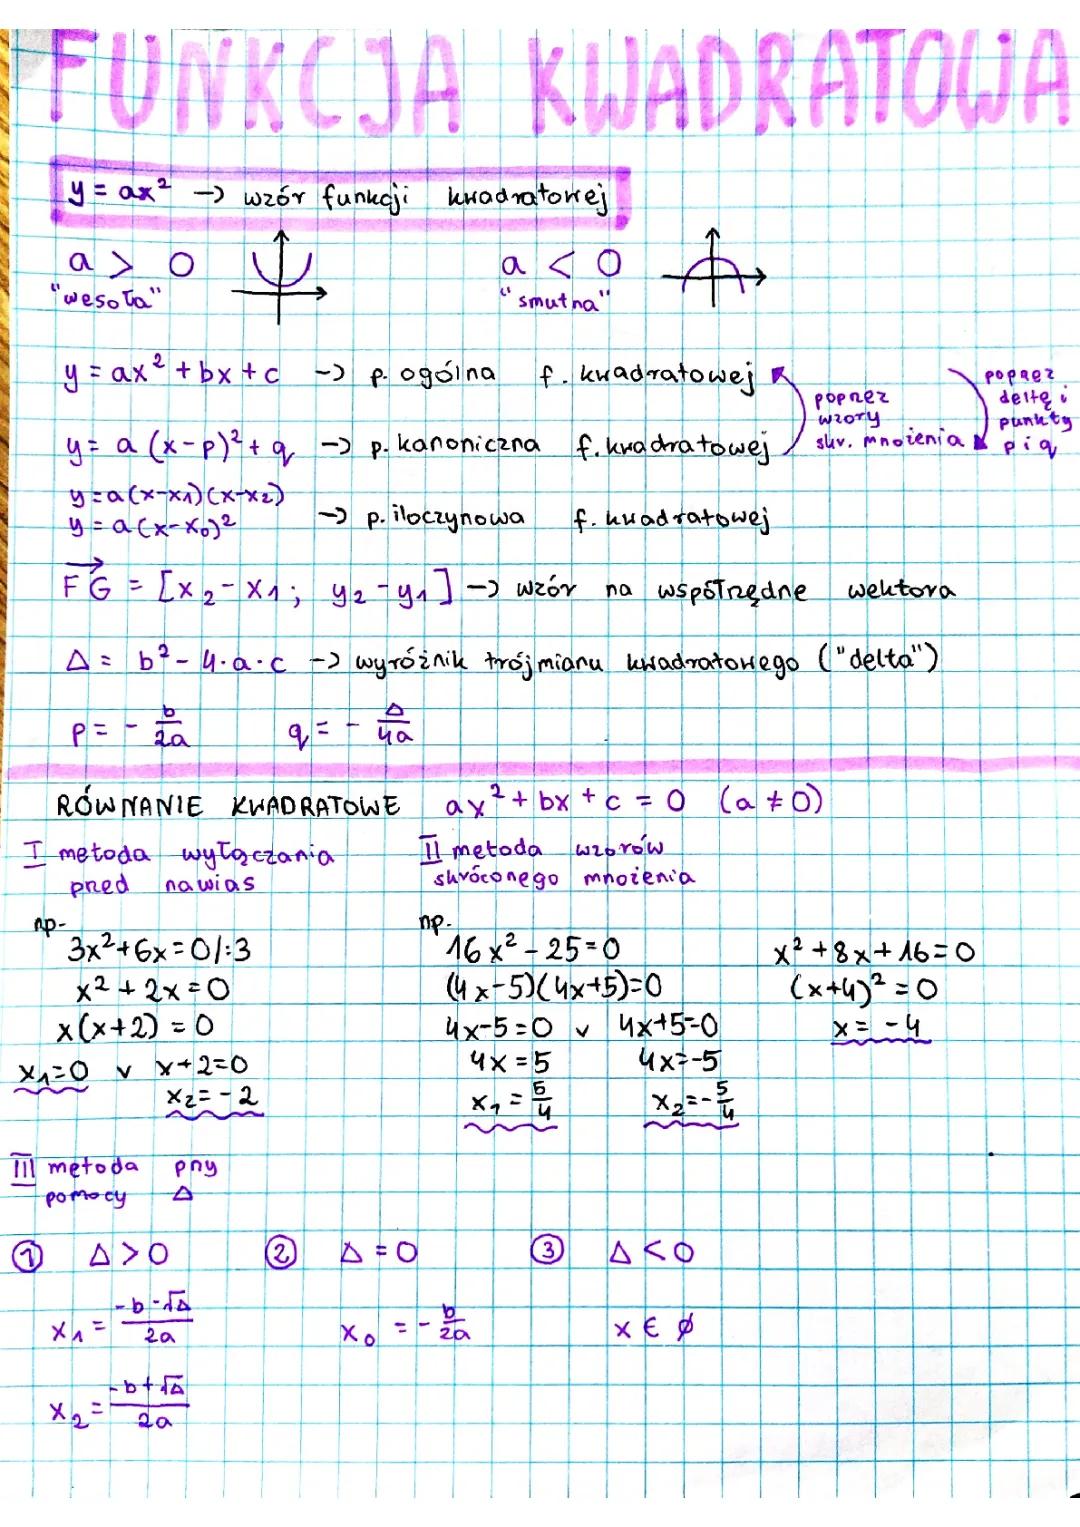 FUNKCJA KWADRATOWA
y = ax² → wzór funkcji kwadratowej
a > 0
"wesoła"
a < 0
"smutna"
y = ax² + bx + c → p. ogólna f. kwadratowej
poprzez wzory skr. mnożenia
poprzez deltę i punkty p i q
y = a (x-p)² + q → p. kanoniczna f. kwadratowej
y = a(x-x₁)(x-x₂)
y = a(x-x₀)² → p. iloczynowa f. kwadratowej
→FG = [x₂-x₁; y₂-y₁] → wzór na współrzędne wektora
Δ = b² - 4·a·c → wyróżnik trójmianu kwadratowego ("delta")
p = - b/2a q = - Δ/4a
RÓWNANIE KWADRATOWE ax² + bx + c = 0 (a ≠ 0)
I metoda wyłączania
przed nawias
np.
3x²+6x=0/:3
x²+2x=0
x(x+2) = 0
x₁=0 v x+2=0
x₂=-2
II metoda wzorów
skróconego mnożenia
np.
16x²-25=0
(4x-5)(4x+5)=0
4x-5=0 v 4x+5=0
4x=5 4x=-5
x₁ = 5/4 x₂=-5/4
x²+8x+16=0
(x+4)²=0
x=-4
III metoda przy
pomocy Δ
① Δ>0
x₁ = -b-√Δ/2a
x₂ = -b+√Δ/2a
② Δ=0
x₀ = - b/2a
③ Δ<0
x ∈ ∅